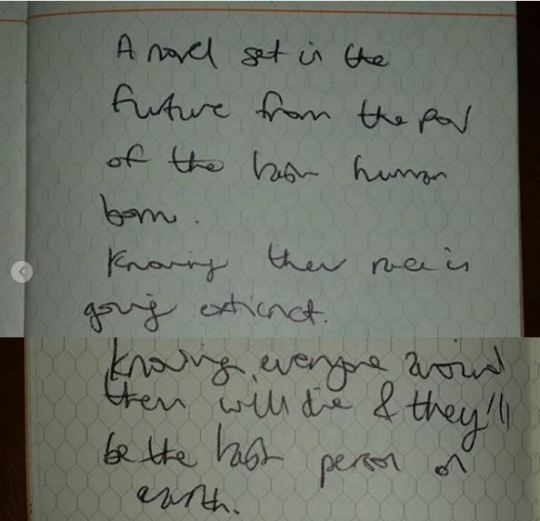 A novel set in the
future from the pov
of the last human
born.
Knowing their race is
going extinct.
Knowing everyone around
them will die & they'll
be the last person on
earth.